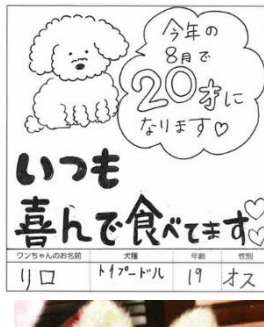 今年の
8月で
20才に
なります♡
いつも
喜んで食べてます♡
ワンちゃんのお名前 犬種 年齢 性別
リロ トイプードル 19 オス